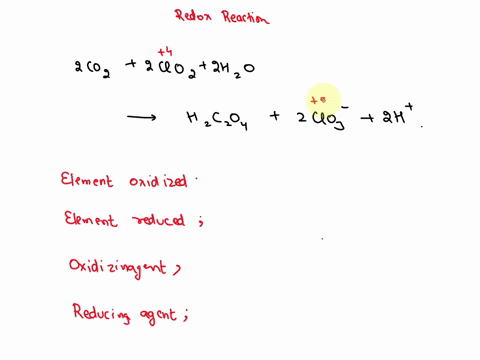 Redox Reaction
+4
2CO2 + 2ClO2 + 2H2O
+5
⟶ H2C2O4 + 2ClO3⁻ + 2H⁺.
Element oxidized.
Element reduced ;
Oxidizinagent ;
Reducing agent ;